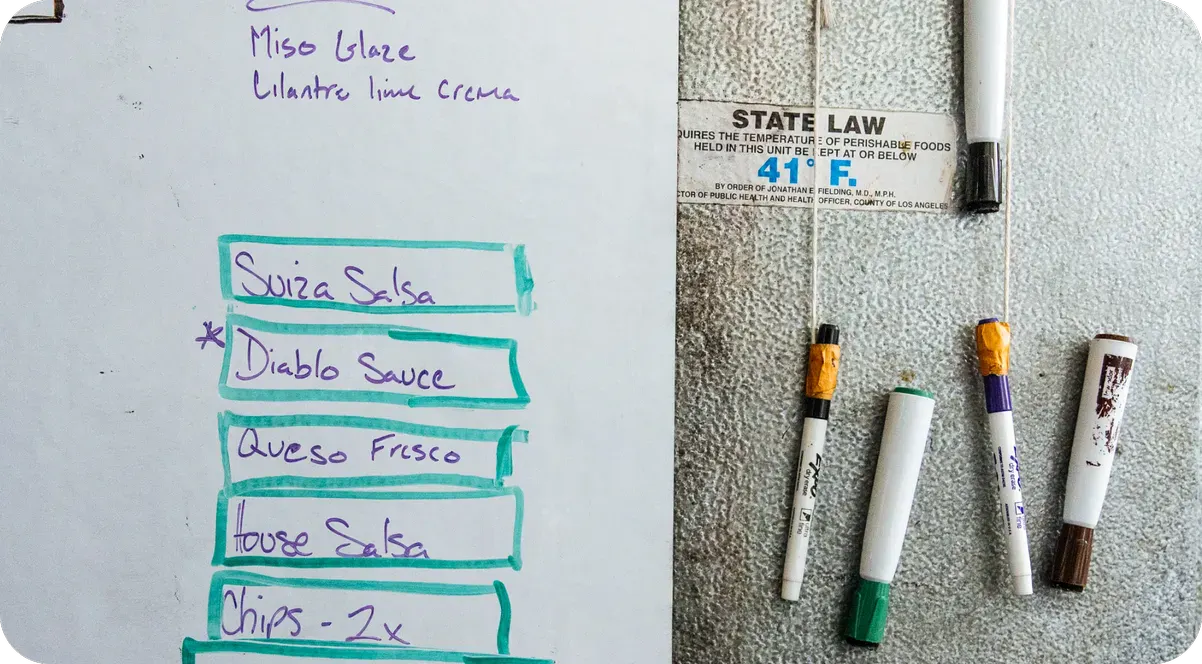 Miso Glaze
Cilantro lime crema
Suiza Salsa
* Diablo Sauce
Queso Fresco
House Salsa
Chips - 2x
STATE LAW
QUIRES THE TEMPERATURE OF PERISHABLE FOODS
HELD IN THIS UNIT BE KEPT AT OR BELOW
41° F.
BY ORDER OF JONATHAN E FIELDING, M.D., M.P.H.
CTOR OF PUBLIC HEALTH AND HEALTH OFFICER, COUNTY OF LOS ANGELES
EXPO
dry erase